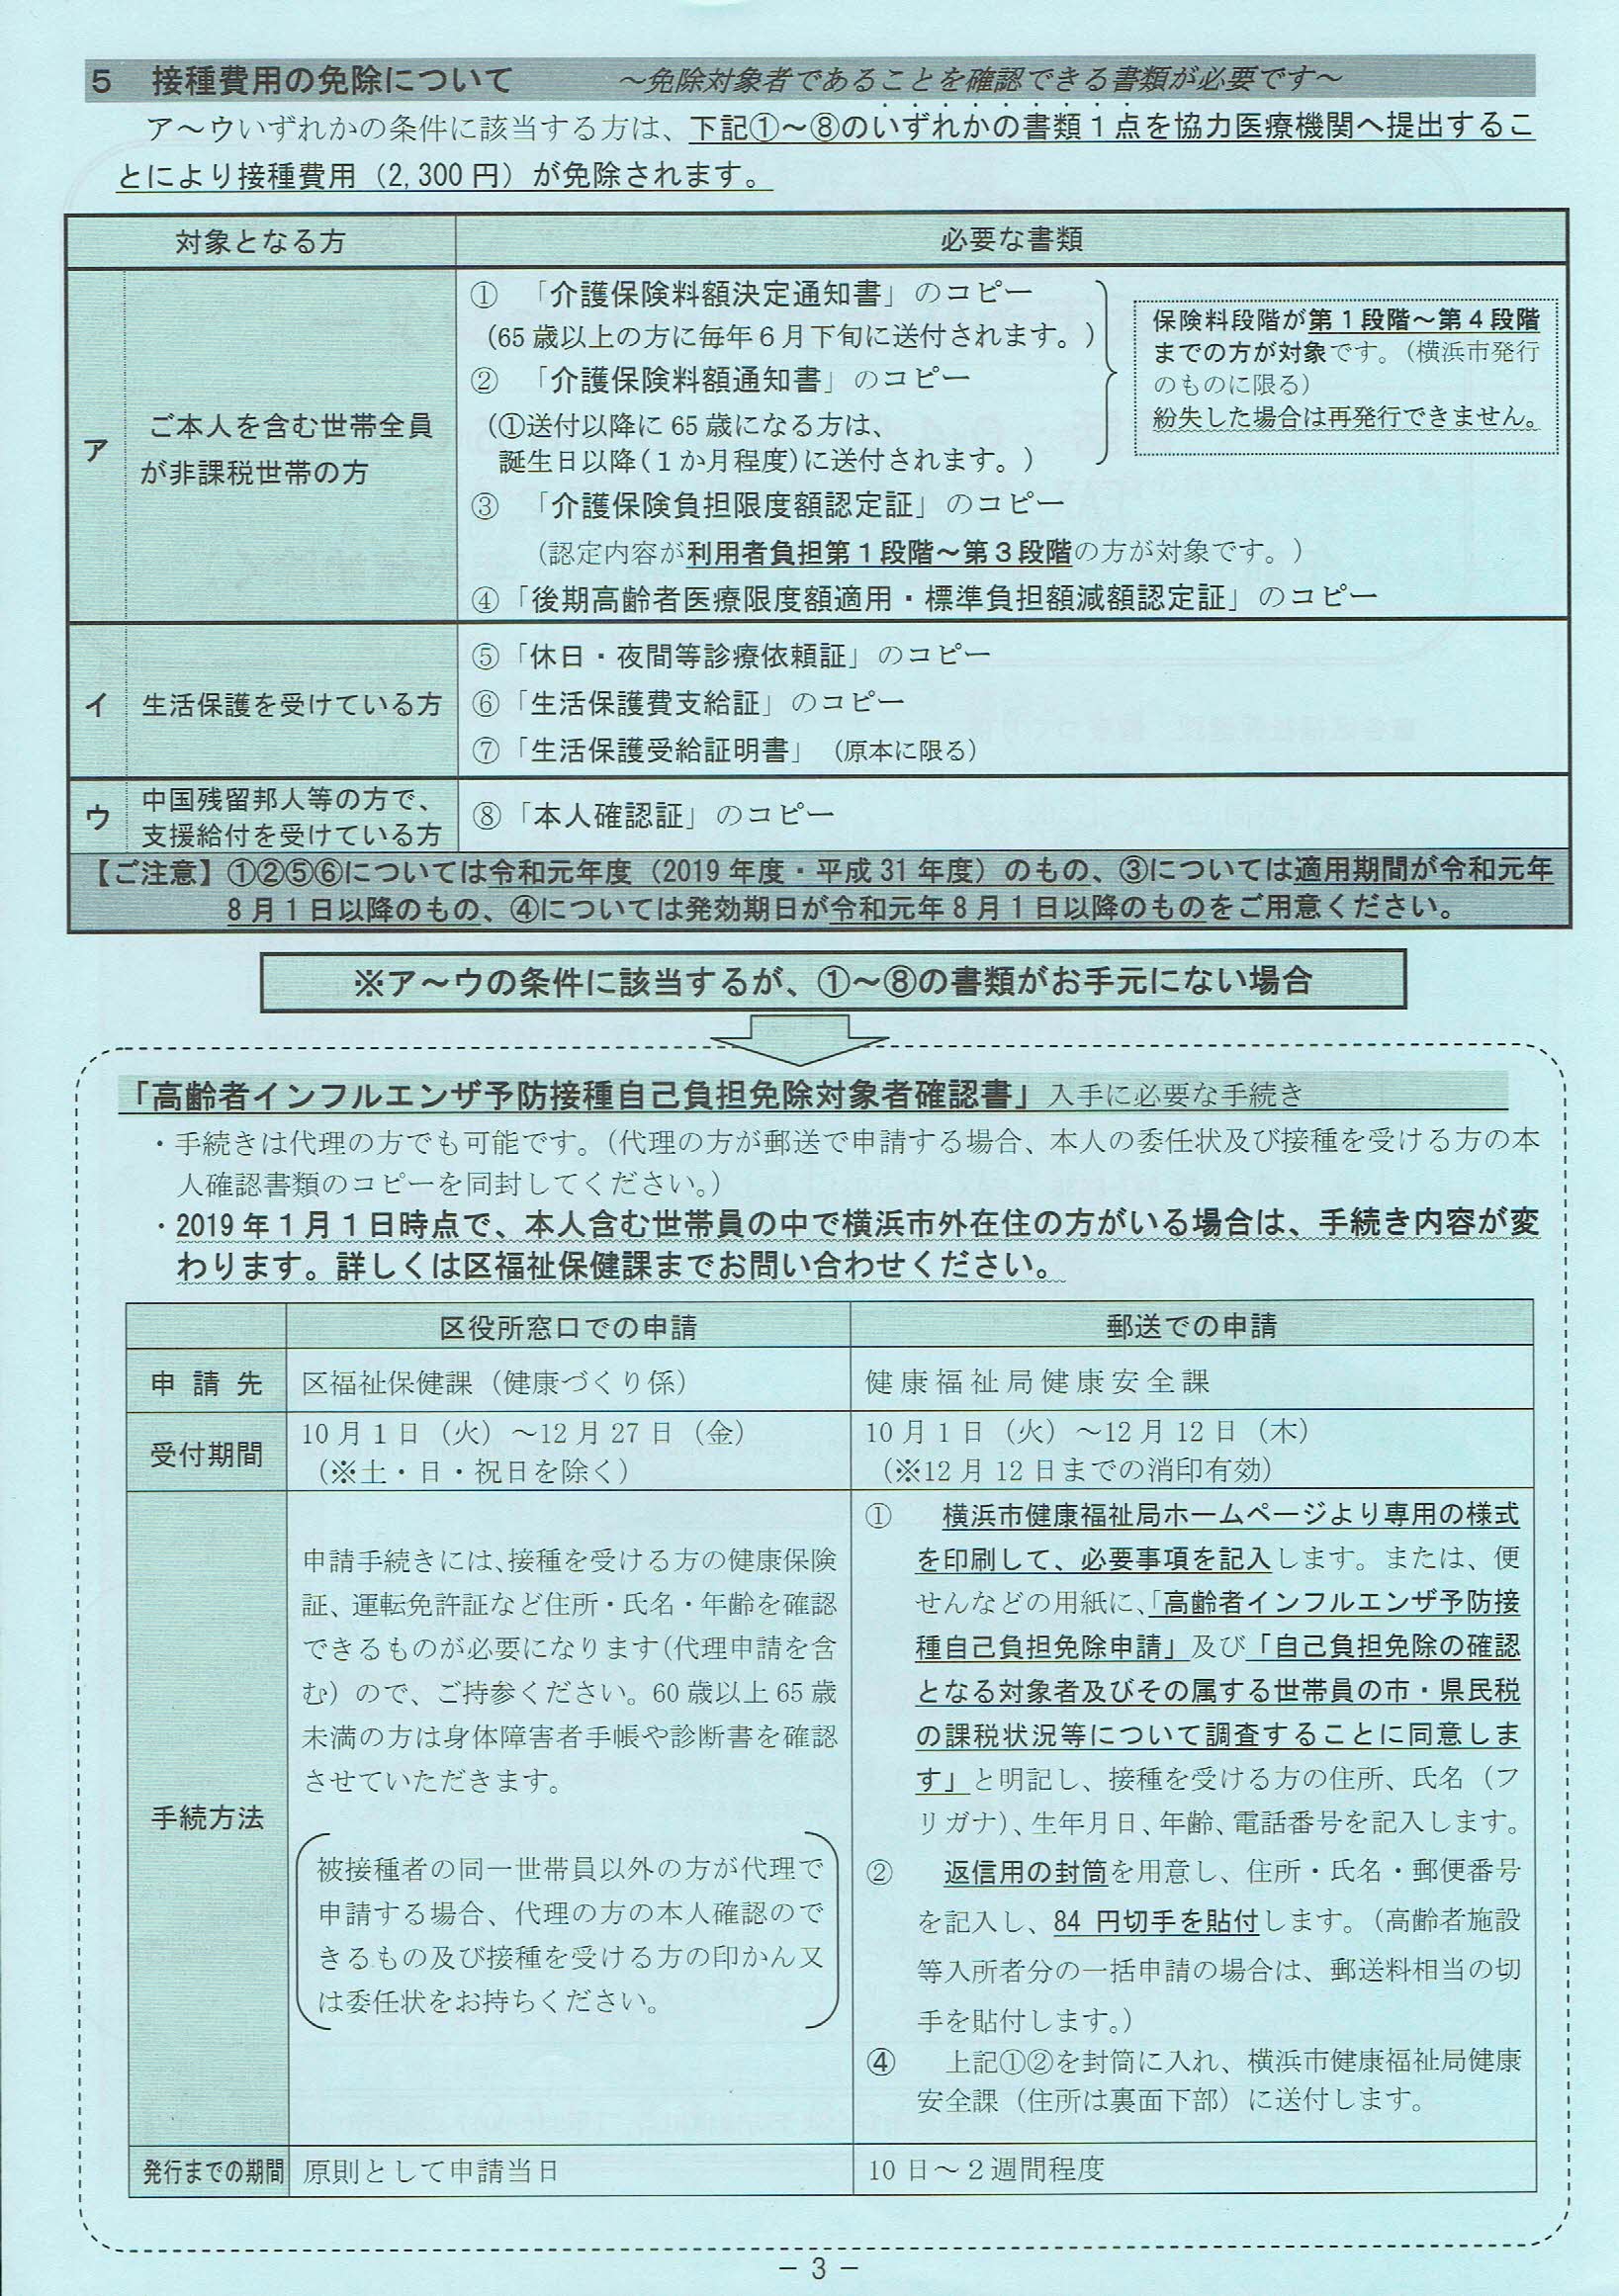 5 接種費用の免除について ～免除対象者であることを確認できる書類が必要です～
ア～ウいずれかの条件に該当する方は、下記①～⑧のいずれかの書類１点を協力医療機関へ提出するこ
とにより接種費用（2,300 円）が免除されます。
対象となる方 必要な書類
ア
ご本人を含む世帯全員
が非課税世帯の方
① 「介護保険料額決定通知書」のコピー
（65 歳以上の方に毎年６月下旬に送付されます。）
② 「介護保険料額通知書」のコピー
（①送付以降に 65 歳になる方は、
誕生日以降（１か月程度）に送付されます。）
保険料段階が第１段階～第４段階
までの方が対象です。（横浜市発行
のものに限る）
紛失した場合は再発行できません。
③ 「介護保険負担限度額認定証」のコピー
（認定内容が利用者負担第１段階～第３段階の方が対象です。）
④「後期高齢者医療限度額適用・標準負担額減額認定証」のコピー
イ 生活保護を受けている方
⑤「休日・夜間等診療依頼証」のコピー
⑥「生活保護費支給証」のコピー
⑦「生活保護受給証明書」（原本に限る）
ウ
中国残留邦人等の方で、
支援給付を受けている方
⑧「本人確認証」のコピー
【ご注意】①②⑤⑥については令和元年度（2019 年度・平成 31 年度）のもの、③については適用期間が令和元年
８月１日以降のもの、④については発効期日が令和元年８月１日以降のものをご用意ください。
※ア～ウの条件に該当するが、①～⑧の書類がお手元にない場合
「高齢者インフルエンザ予防接種自己負担免除対象者確認書」入手に必要な手続き
・手続きは代理の方でも可能です。（代理の方が郵送で申請する場合、本人の委任状及び接種を受ける方の本
人確認書類のコピーを同封してください。）
・2019 年１月１日時点で、本人含む世帯員の中で横浜市外在住の方がいる場合は、手続き内容が変
わります。詳しくは区福祉保健課までお問い合わせください。
区役所窓口での申請 郵送での申請
申請先 区福祉保健課（健康づくり係） 健康福祉局健康安全課
受付期間
10 月１日（火）～12 月 27 日（金）
（※土・日・祝日を除く）
10 月１日（火）～12 月 12 日（木）
（※12 月 12 日までの消印有効）
手続方法
申請手続きには、接種を受ける方の健康保険
証、運転免許証など住所・氏名・年齢を確認
できるものが必要になります（代理申請を含
む）ので、ご持参ください。60 歳以上 65 歳
未満の方は身体障害者手帳や診断書を確認
させていただきます。
被接種者の同一世帯員以外の方が代理で
申請する場合、代理の方の本人確認ので
きるもの及び接種を受ける方の印かん又
は委任状をお持ちください。
① 横浜市健康福祉局ホームページより専用の様式
を印刷して、必要事項を記入します。または、便
せんなどの用紙に、「高齢者インフルエンザ予防接
種自己負担免除申請」及び「自己負担免除の確認
となる対象者及びその属する世帯員の市・県民税
の課税状況等について調査することに同意しま
す」と明記し、接種を受ける方の住所、氏名（フ
リガナ）、生年月日、年齢、電話番号を記入します。
② 返信用の封筒を用意し、住所・氏名・郵便番号
を記入し、84 円切手を貼付します。（高齢者施設
等入所者分の一括申請の場合は、郵送料相当の切
手を貼付します。）
④ 上記①②を封筒に入れ、横浜市健康福祉局健康
安全課（住所は裏面下部）に送付します。
発行までの期間 原則として申請当日 10 日～２週間程度
－ 3 －